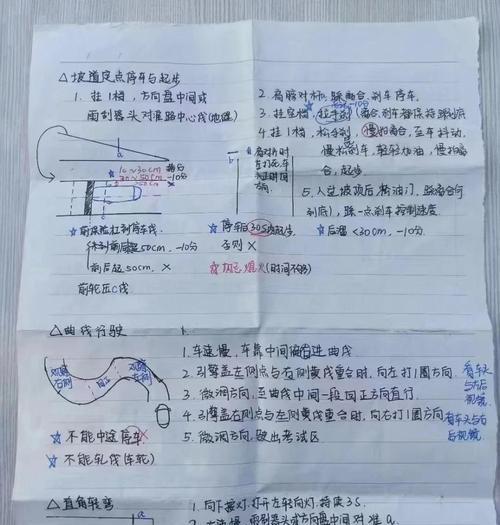 △坡道定点停车与起步
1. 挂1档，方向盘中间或
雨刮器头对准路中心线(地逢)
a
10~30cm
30~50cm -10分
>50cm
☆前保险杠到停车线
前后超50cm, -10分
前后超50cm, ×
前轮压C线
b
2. 肩膀对杆，踩离合、刹车停车。
☆ -10分
3. 挂空档，拉手刹(离合、刹车都保持踩到底)
4. 挂1档，松手刹，慢抬离合，至车抖动，
慢松刹车，轻轻加油，慢抬离
合，起步。
5. 入上坡顶后，松油门，踩离合(可
到底)，踩一点刹车控制速度。
☆停车后30S内起步
否则 ×
☆后溜<30cm, -10分
(时间不够)
△曲线行驶
1. 车速慢，车靠中间偏右进曲线
2. 引擎盖左侧点与右侧黄线重合时，向左打1圆方向
3. 微调方向，至曲线中间一段回正方向直行。
4. 引擎盖右侧点与左侧黄线重合时，向右打1圆方向
5. 微调方向，驶出考试区
看车头
与左后
视镜
看车头与右
后视镜
☆不能中途停车×
☆不能轧线(车轮)
△直角转弯
1. 向下拨灯，打开左转向灯，持续3S.
a
2. 车速慢，雨刮器头或方向盘中间对准a.